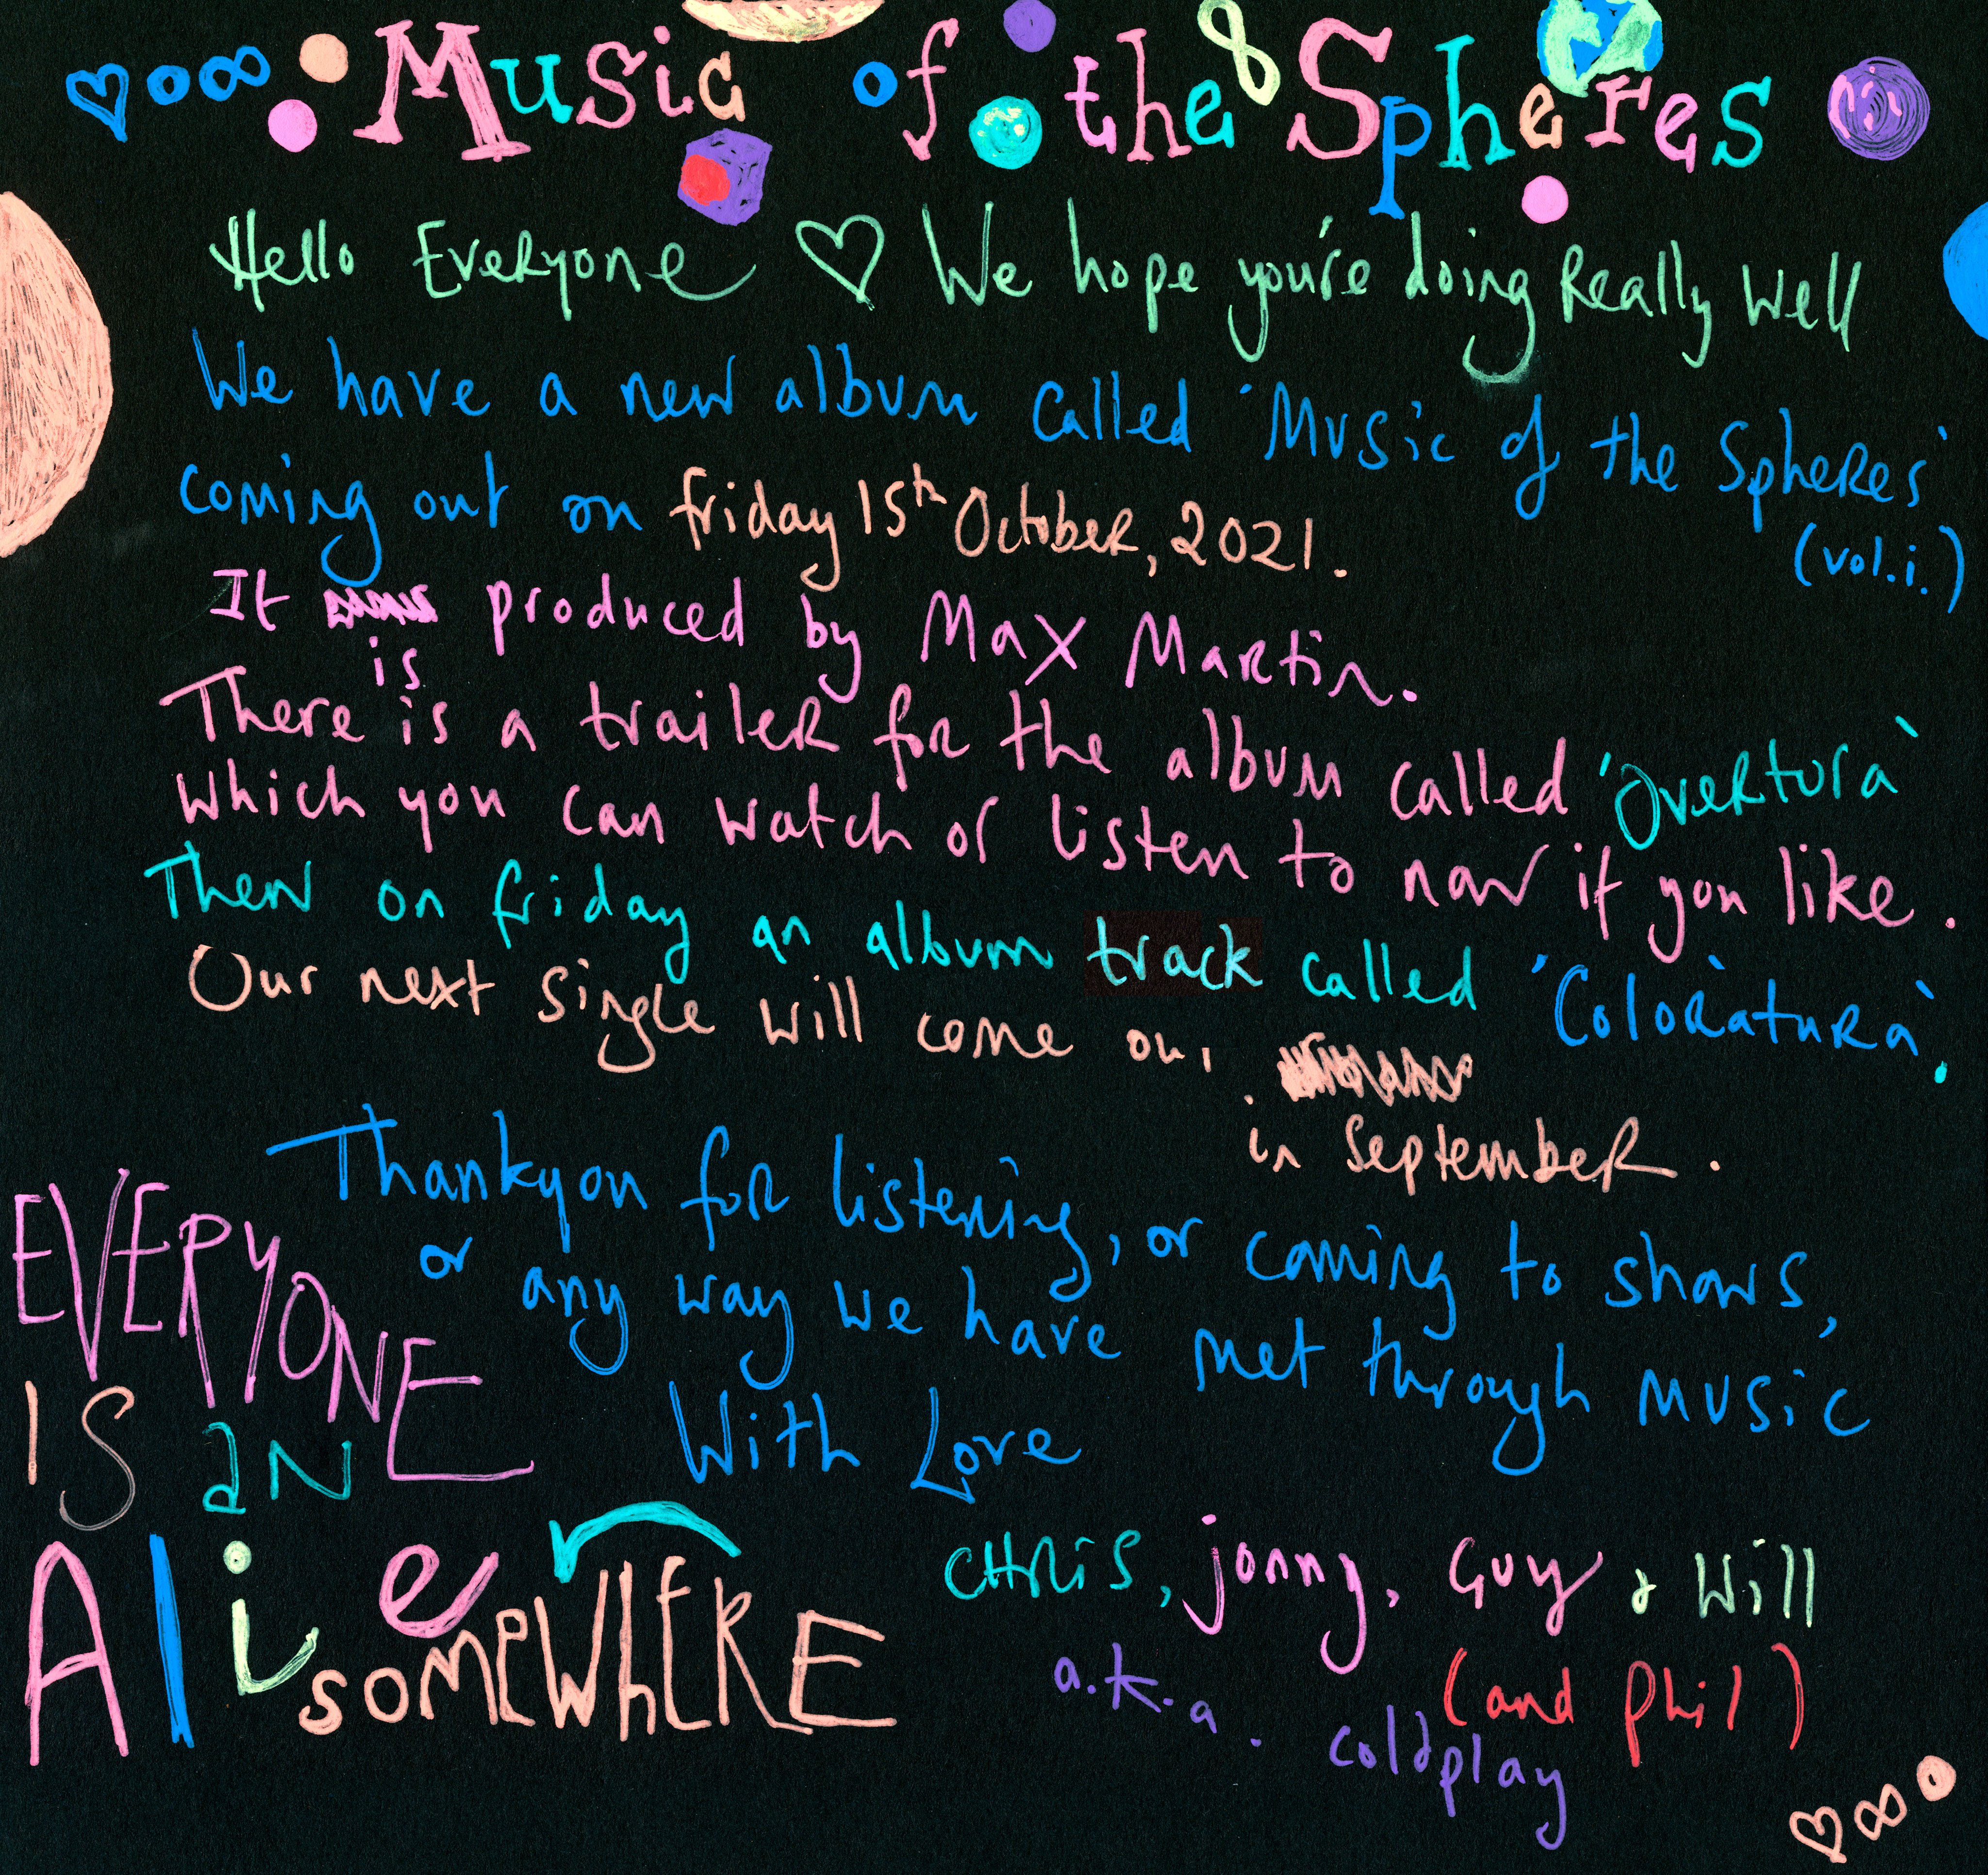 Music of the Spheres
Hello Everyone ♡ We hope you're doing Really Well
We have a new album called 'Music of the Spheres'
(vol.i.)
coming out on friday 15th October, 2021.
It is produced by Max Martin.
There is a trailer for the album called 'Overtura'
which you can watch or listen to now if you like.
Then on friday an album track called 'Coloratura'.
Our next single will come out
in September.
Thankyou for listening, or coming to shows,
or any way we have met through music
With Love
EVERYONE
IS aN
Alie
somewhERE
CHRiS, jonny, Guy & Will
(and Phil)
a.k.a. coldplay